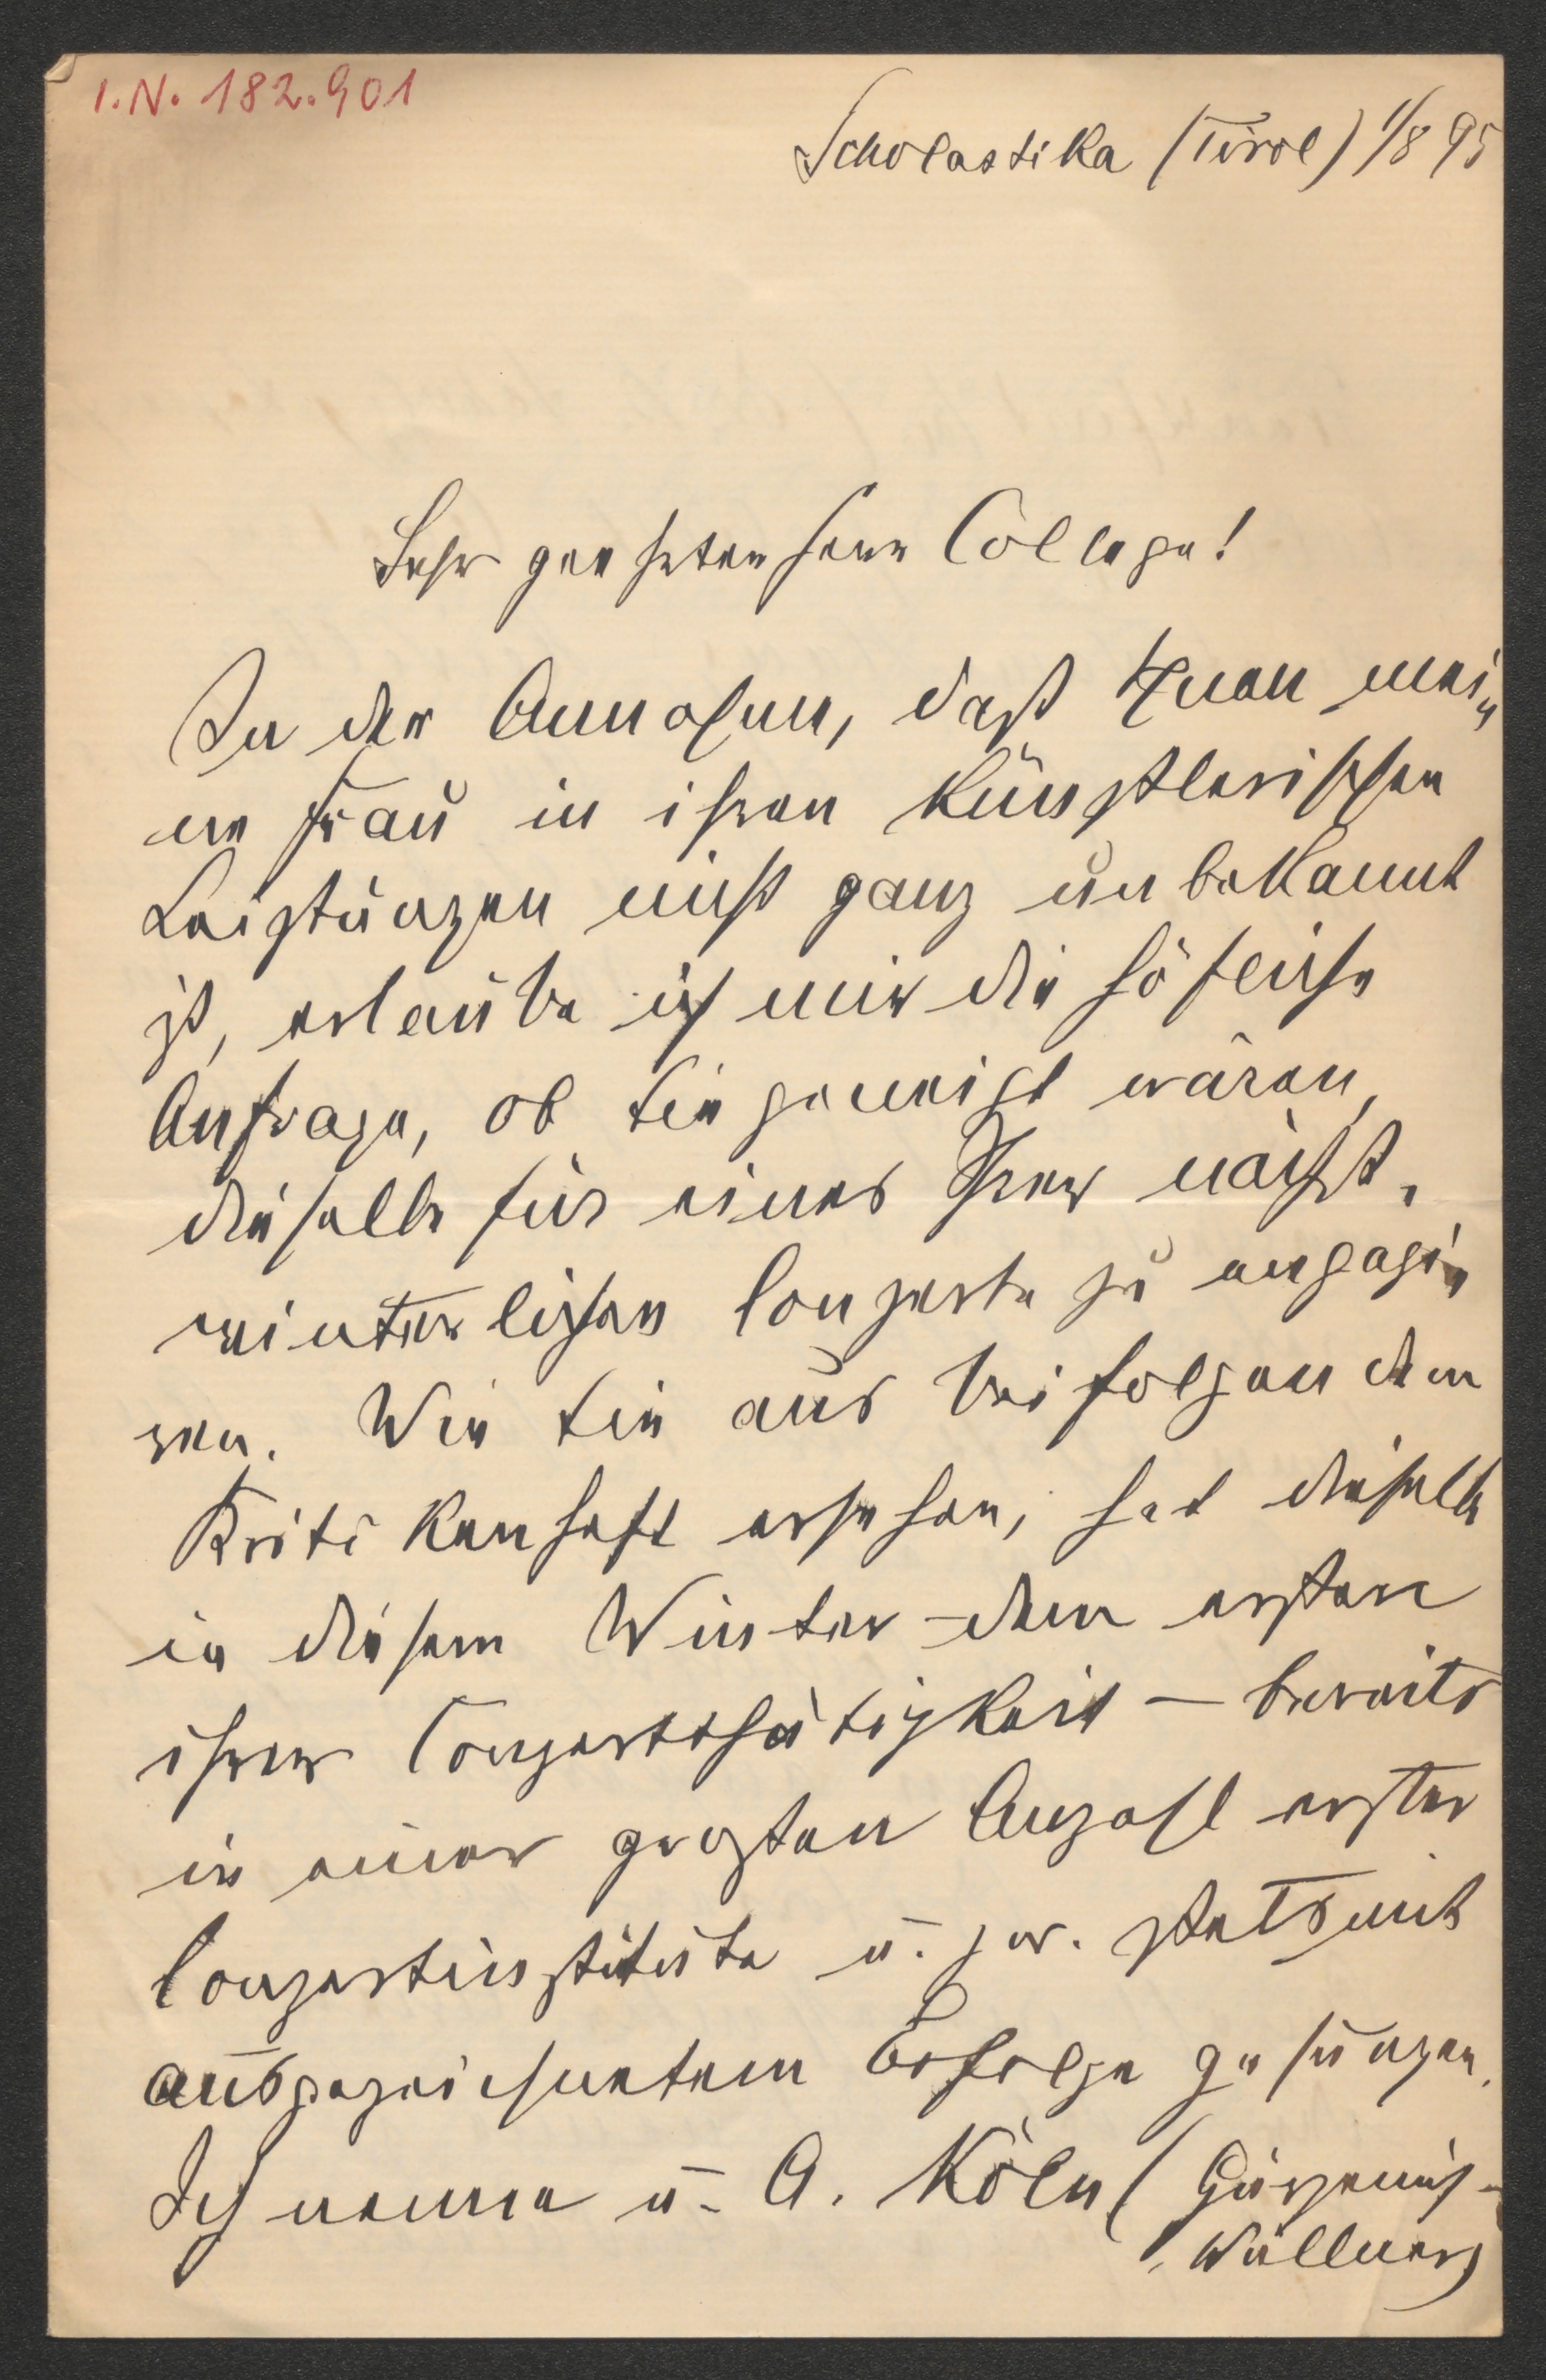 I.N. 182.901
Scholastika (Tirol) 1/8 95
Sehr geehrter Herr College!
In der Annahme, daß Ihnen mei„
ne Frau in ihren künstlerischen
Leistungen nicht ganz unbekannt
ist, erlaube ich mir die höfliche
Anfrage, ob Sie geneigt wären,
dieselbe für eines Ihrer nächst„
winterlichen Conzerte zu engagi„
ren. Wie Sie aus beifolgendem
Kritikenheft ersehen, hat dieselbe
in diesem Winter – dem ersten
ihrer Conzertthätigkeit – bereits
in einer großen Anzahl erster
Conzertinstitute u. zw. stets mit
ausgezeichnetem Erfolge gesungen.
Ich nenne u. A. Köln (Gürzenich –
Wüllner)